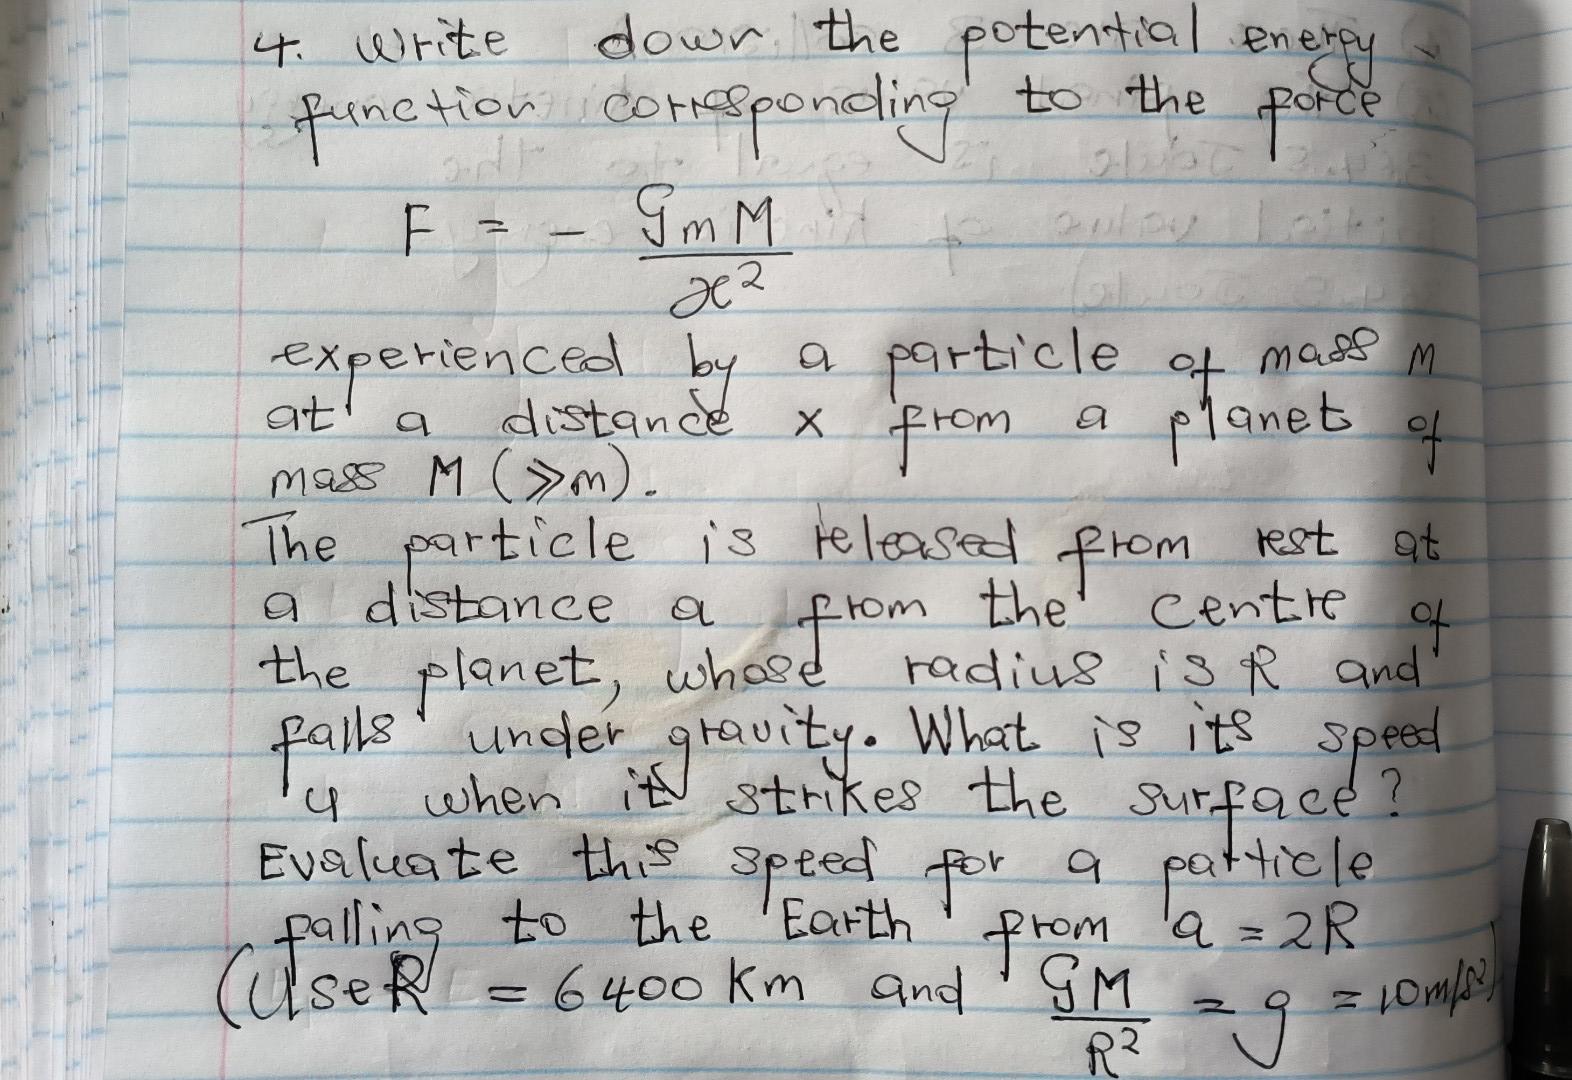 4. Write down the potential energy
function corresponding to the force
F = - GmM
x²
experienced by a particle of mass m
at a distance x from a planet of
mass M (≫m).
The particle is released from rest at
a distance a from the centre of
the planet, whose radius is R and
falls under gravity. What is its speed
u when it strikes the surface?
Evaluate this speed for a particle
falling to the Earth from a = 2R
(Use R = 6400 Km and GM/R² = g = 10m/s²)